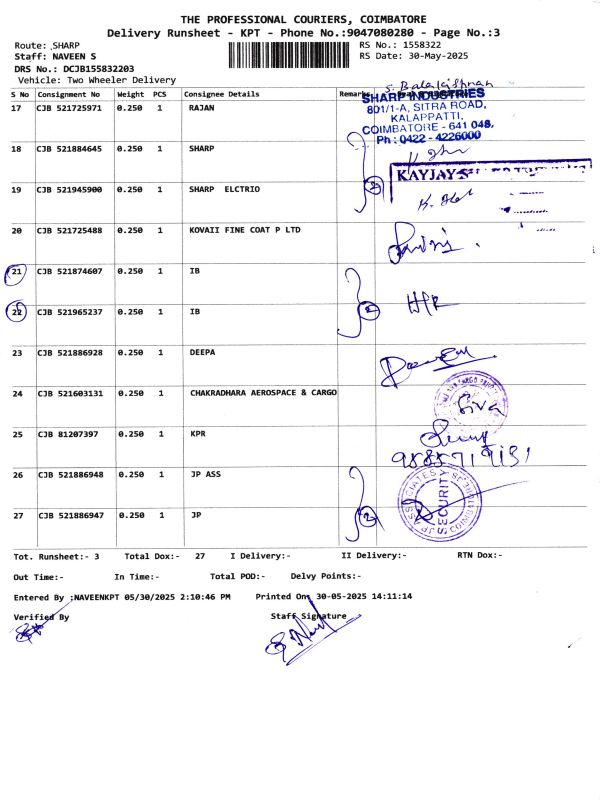 THE PROFESSIONAL COURIERS, COIMBATORE
Delivery Runsheet - KPT - Phone No.:9047080280 - Page No.:3
Route: SHARP
RS No.: 1558322
Staff: NAVEEN S
RS Date: 30-May-2025
DRS No.: DCJB155832203
Vehicle: Two Wheeler Delivery
S No Consignment No Weight PCS Consignee Details Remarks
S. Balakrishnan
SHARP INDUSTRIES
801/1-A, SITRA ROAD,
KALAPPATTI,
COIMBATORE - 641 048.
Ph : 0422 - 4226000
17 CJB 521725971 0.250 1 RAJAN
18 CJB 521884645 0.250 1 SHARP
KAYJAY
19 CJB 521945900 0.250 1 SHARP ELCTRIO 2
20 CJB 521725488 0.250 1 KOVAII FINE COAT P LTD
21 CJB 521874607 0.250 1 IB
22 CJB 521965237 0.250 1 IB 2
23 CJB 521886928 0.250 1 DEEPA
24 CJB 521603131 0.250 1 CHAKRADHARA AEROSPACE & CARGO
Siva
25 CJB 81207397 0.250 1 KPR
26 CJB 521886948 0.250 1 JP ASS
JP ASSOCIATES
SECURITY
COIMBATORE
27 CJB 521886947 0.250 1 JP 2
Tot. Runsheet:- 3 Total Dox:- 27 I Delivery:- II Delivery:- RTN Dox:-
Out Time:- In Time:- Total POD:- Delvy Points:-
Entered By :NAVEENKPT 05/30/2025 2:10:46 PM Printed On: 30-05-2025 14:11:14
Verified By Staff Signature